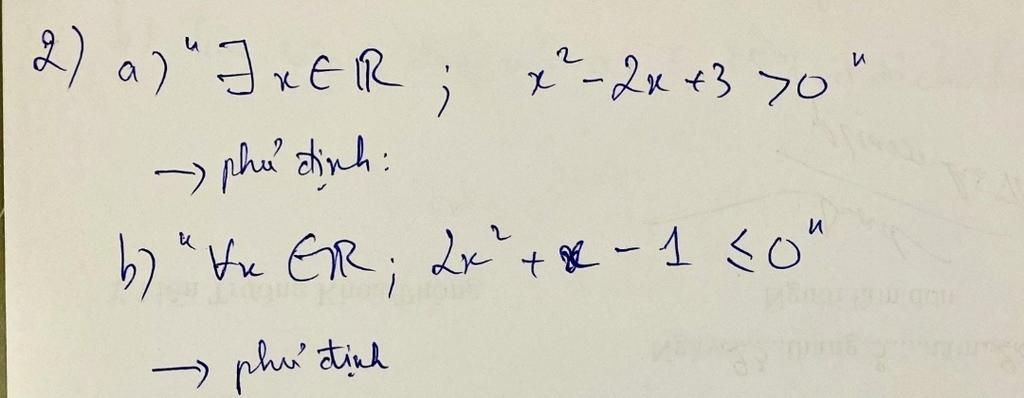 2) a) "∃x∈ℝ ; x² - 2x + 3 > 0"
→ phủ định:
b) "∀x ∈ℝ; 2x² + x - 1 ≤ 0"
→ phủ định